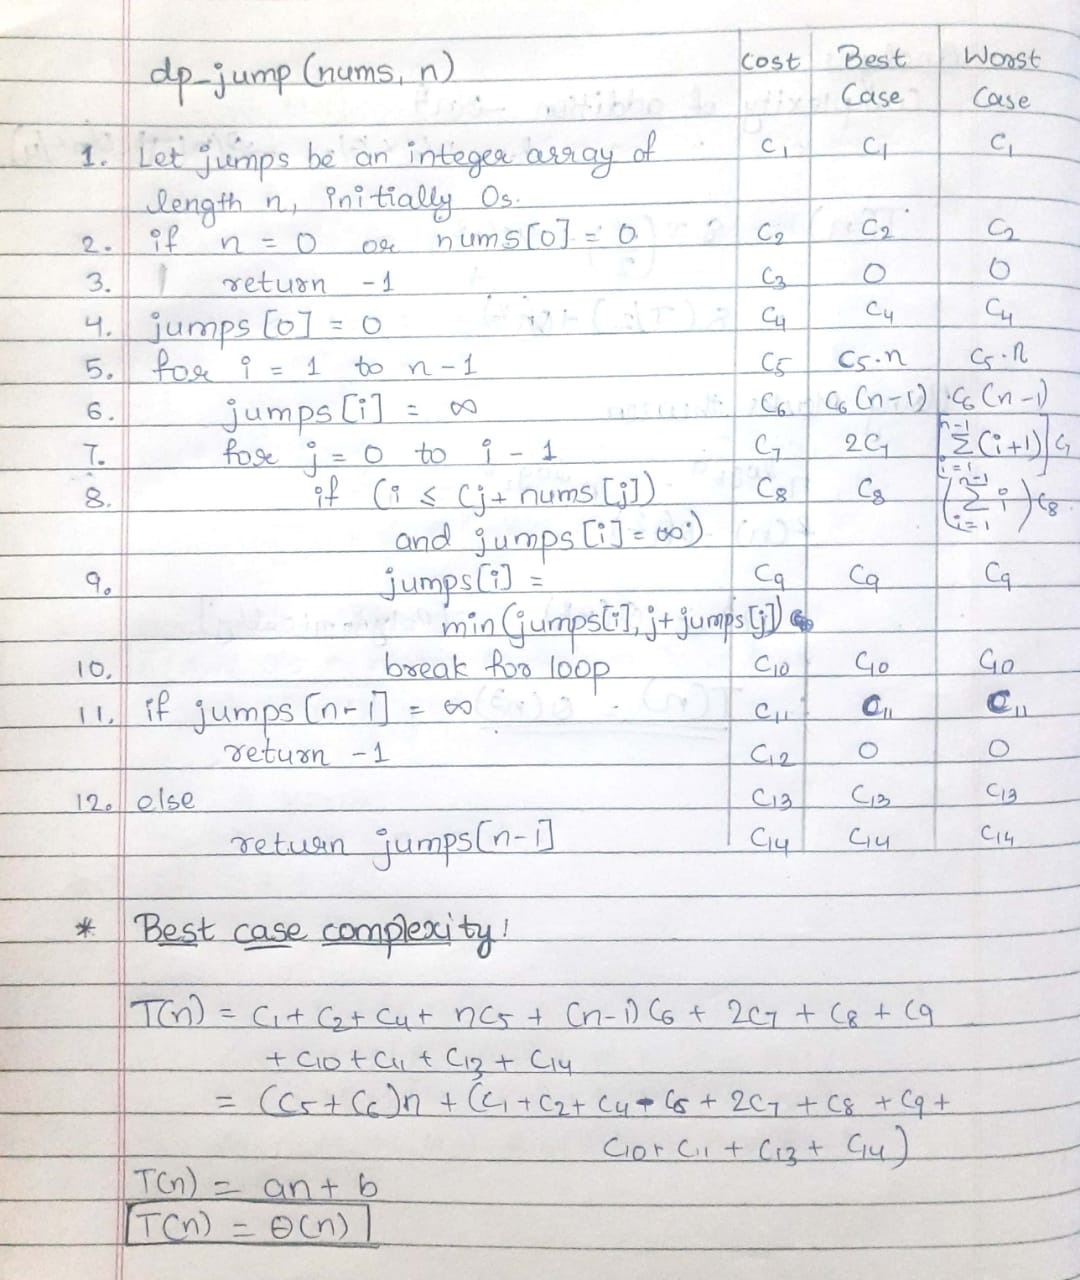 dp_jump (nums, n) cost Best Case Worst Case
1. Let jumps be an integer array of C1 C1 C1
length n, initially 0s.
2. if n = 0 or nums[0] = 0 C2 C2 C2
3. return -1 C3 0 0
4. jumps [0] = 0 C4 C4 C4
5. for i = 1 to n-1 C5 C5.n C5.n
6. jumps [i] = ∞ C6 C6 (n-1) C6 (n-1)
7. for j = 0 to i - 1 C7 2C7 [n-1 Σ i=1 (i+1)] C7
8. if (i ≤ (j + nums[j]) C8 C8 (n-1 Σ i=1 i) C8
and jumps [i] = ∞)
9. jumps[i] = C9 C9 C9
min (jumps[i], j+jumps[j])
10. break for loop C10 C10 C10
11. if jumps [n-1] = ∞ C11 C11 C11
return -1 C12 0 0
12. else C13 C13 C13
return jumps[n-1] C14 C14 C14
* Best case complexity!
T(n) = C1 + C2 + C4 + nC5 + (n-1) C6 + 2C7 + C8 + C9
+ C10 + C11 + C13 + C14
= (C5 + C6)n + (C1 + C2 + C4 - C6 + 2C7 + C8 + C9 +
C10 + C11 + C13 + C14)
T(n) = an + b
T(n) = Θ(n)